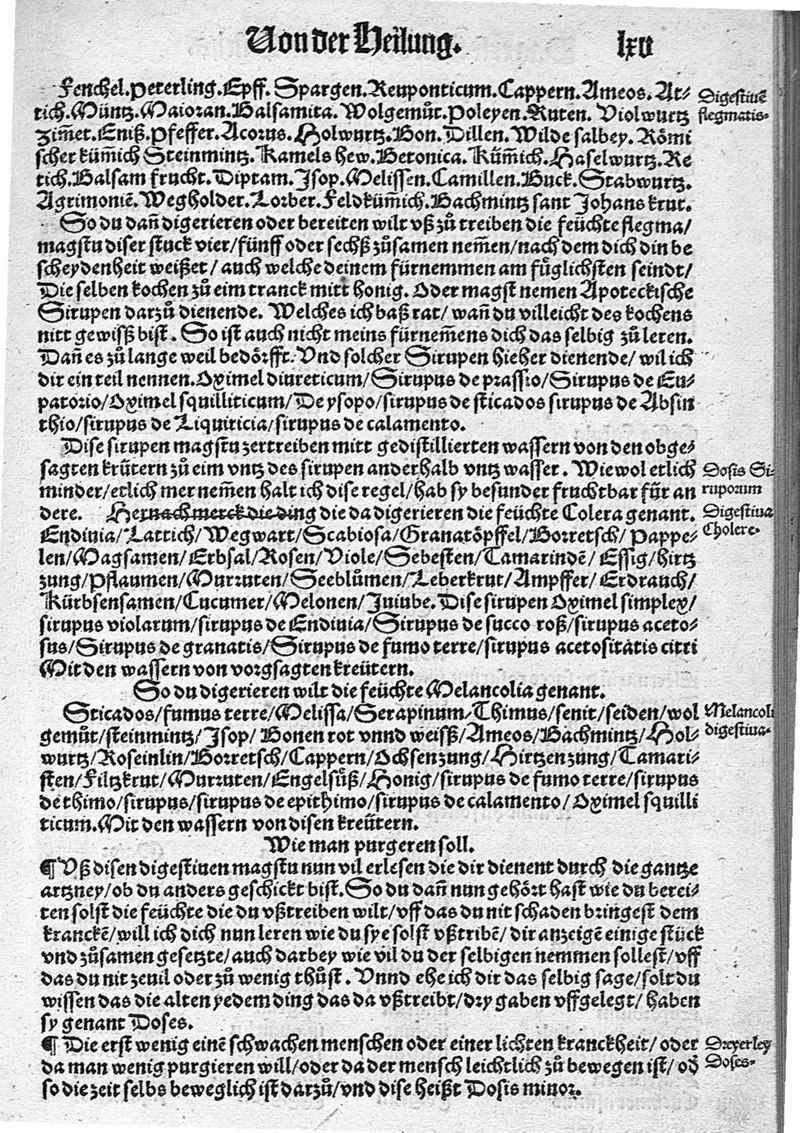 Von der Heilung. lxv
Fenchel. Peterling. Epff. Spargen. Reuponticum. Cappern. Ameos. At-
tich. Müntz. Maioran. Balsamita. Wolgemůt. Poleyen. Ruten. Violwurtz
Zim̃et. Eniß. Pfeffer. Acorus. Holwurtz. Bon. Dillen. Wilde salbey. Römi
scher küm̃ich Steinmintz. Kamels hew. Betonica. Küm̃ich. Haselwurtz. Re
tich. Balsam frucht. Diptam. Isop. Melissen. Camillen. Buck. Stabwurtz.
Agrimoniē. Wegholder. Lorber. Feldküm̃ich. Bachmintz sant Johans krut.
Digestiuē
flegmatis-
So du dañ digerieren oder bereiten wilt vß zů treiben die feüchte flegma/
magstu diser stuck vier/fünff oder sechß zůsamen nem̃en/nach dem dich din be
scheydenheit weißet/ auch welche deinem fürnemmen am fůglichsten seindt/
Die selben kochen zů eim tranck mitt honig. Oder magst nemen Apoteckische
Sirupen darzů dienende. Welches ich baß rat/ wañ du villeicht des kochens
nitt gewiß bist. So ist auch nicht meins fürnem̃ens dich das selbig zů leren.
Dañ es zů lange weil bedörfft. Vnd solcher Sirupen hieher dienende/ wil ich
dir ein teil nennen. Oximel diureticum/Sirupus de prassio/Sirupus de Eu-
patorio/Oximel squilliticum/ De ysopo/sirupus de sticados sirupus de Absin
thio/sirupus de Liquiricia/sirupus de calamento.
Dise sirupen magstu zertreiben mitt gedistillierten wassern von den obge-
sagten krütern zů eim vntz des sirupen anderhalb vntz wasser. Wiewol etlich
minder/etlich mer nem̃en halt ich dise regel/hab sy besunder fruchtbar für an
dere. Hernach merck die ding die da digerieren die feüchte Colera genant.
Dosis Si-
ruporum
Digestiua
Cholere-
Endiuia/Lattich/Wegwart/Scabiosa/Granatöpffel/Borretsch/ Pappe-
len/Magsamen/Erbsal/Rosen/Viole/Sebesten/Tamarindē/ Essig/hirtz
zung/Pflaumen/Murruten/Seeblůmen/Leberkrut/Ampffer/Erdrauch/
Kürbsensamen/Cucumer/Melonen/Iuiube. Dise sirupen Oximel simplex/
sirupus violarum/sirupus de Endiuia/Sirupus de succo roß/sirupus aceto-
sus/Sirupus de granatis/Sirupus de fumo terre/sirupus acetositatis citri
Mit den wassern von vorgsagten kreütern.
So du digerieren wilt die feüchte Melancolia genant.
Sticados/fumus terre/Melissa/Serapinum/Thimus/senit/seiden/wol
gemůt/steinmintz/Isop/ Bonen rot vnnd weiß/Ameos/Bachmintz/Hol-
wurtz/Roseinlin/Borretsch/Cappern/Ochsenzung/Hirtzenzung/Tamari-
sten/Filtzkrut/Murruten/Engelsůß/Honig/sirupus de fumo terre/sirupus
de thimo/sirupus/sirupus de epithimo/sirupus de calamento/Oximel squilli
ticum. Mit den wassern von disen kreütern.
Melancoli
digestiua-
Wie man purgeren soll.
¶ Vß disen digestiuen magstu nun vil erlesen die dir dienent durch die gantze
artzney/ob du anders geschickt bist. So du dañ nun gehört hast wie du berei-
ten solst die feüchte die du vßtreiben wilt/vff das du nit schaden bringest dem
kranckē/will ich dich nun leren wie du sye solst vßtribē/ dir anzeigē einige stück
vnd zůsamen gesetzte/auch darbey wie vil du der selbigen nemmen sollest/vff
das du nit zeuil oder zů wenig thůst. Vnnd ehe ich dir das selbig sage/solt du
wissen das die alten yedem ding das da vßtreibt/dry gaben vffgelegt/ haben
sy genant Doses.
¶ Die erst wenig einē schwachen menschen oder einer lichten kranckheit/ oder
da man wenig purgieren will/oder da der mensch leichtlich zů bewegen ist/ od̕
so die zeit selbs beweglich ist darzů/vnd dise heißt Dosis minor.
Dreyerley
Doses-